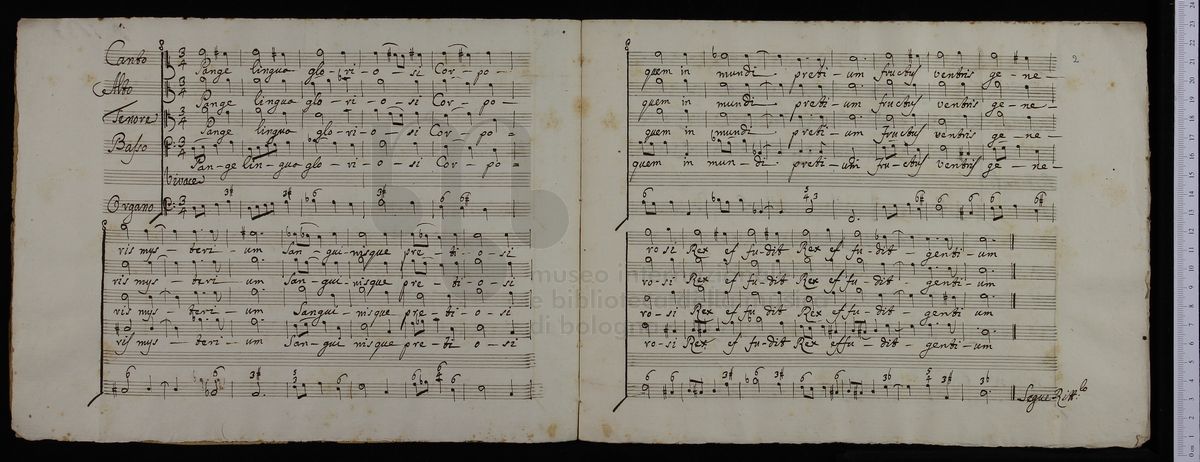 Canto 3/4 Pange lingua glo-ri-o-si Cor-po-
Alto 3/4 Pange lingua glo-ri-o-si Cor-po-
Tenore 3/4 Pange lingua glo-ri-o-si Cor-po-
Basso 3/4 Pan-ge lin-gua glo-ri-o-si Cor-po-
Vivace
Organo 3/4
ris mys-teri-um San-gui-nisque pre-ti-o-si
ris mys-teri-um San-gui-nisque pre-ti-o-si
ris mys-teri-um Sangui-nisque pre-ti-o-si
ris mys-teri-um San-gui nisque pre-ti-o-si
2
quem in mundi preti-um fructus ventris ge-ne-
quem in mundi preti-um fructus ventris ge-ne-
quem in mundi preti-um fructus ventris ge-ne-
quem in mun-di preti-um fru-ctus ventris ge-ne-
ro-si Rex ef fu-dit Rex ef fu-dit-genti-um
ro-si Rex ef fu-dit Rex ef fu-dit-genti-um
ro-si Rex ef fu-dit Rex ef fu-dit-genti um
ro-si Rex ef fu-dit Rex effu-dit-genti-um
Segue Ritt.lo
museo inter
e biblioteca della musica
di bologna